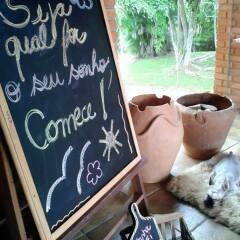 Seja
qual for
o seu sonho
Comece!